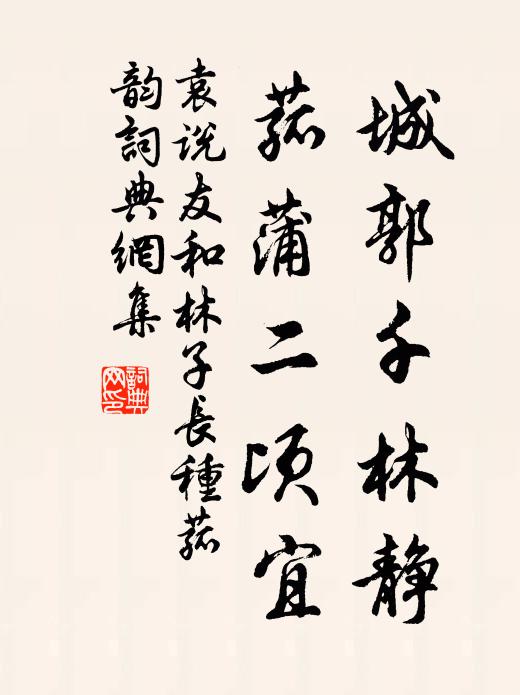 城郭千林静
菰蒲二頃宜
袁说友和林子長種菰
韵詞典網集
詞典網印